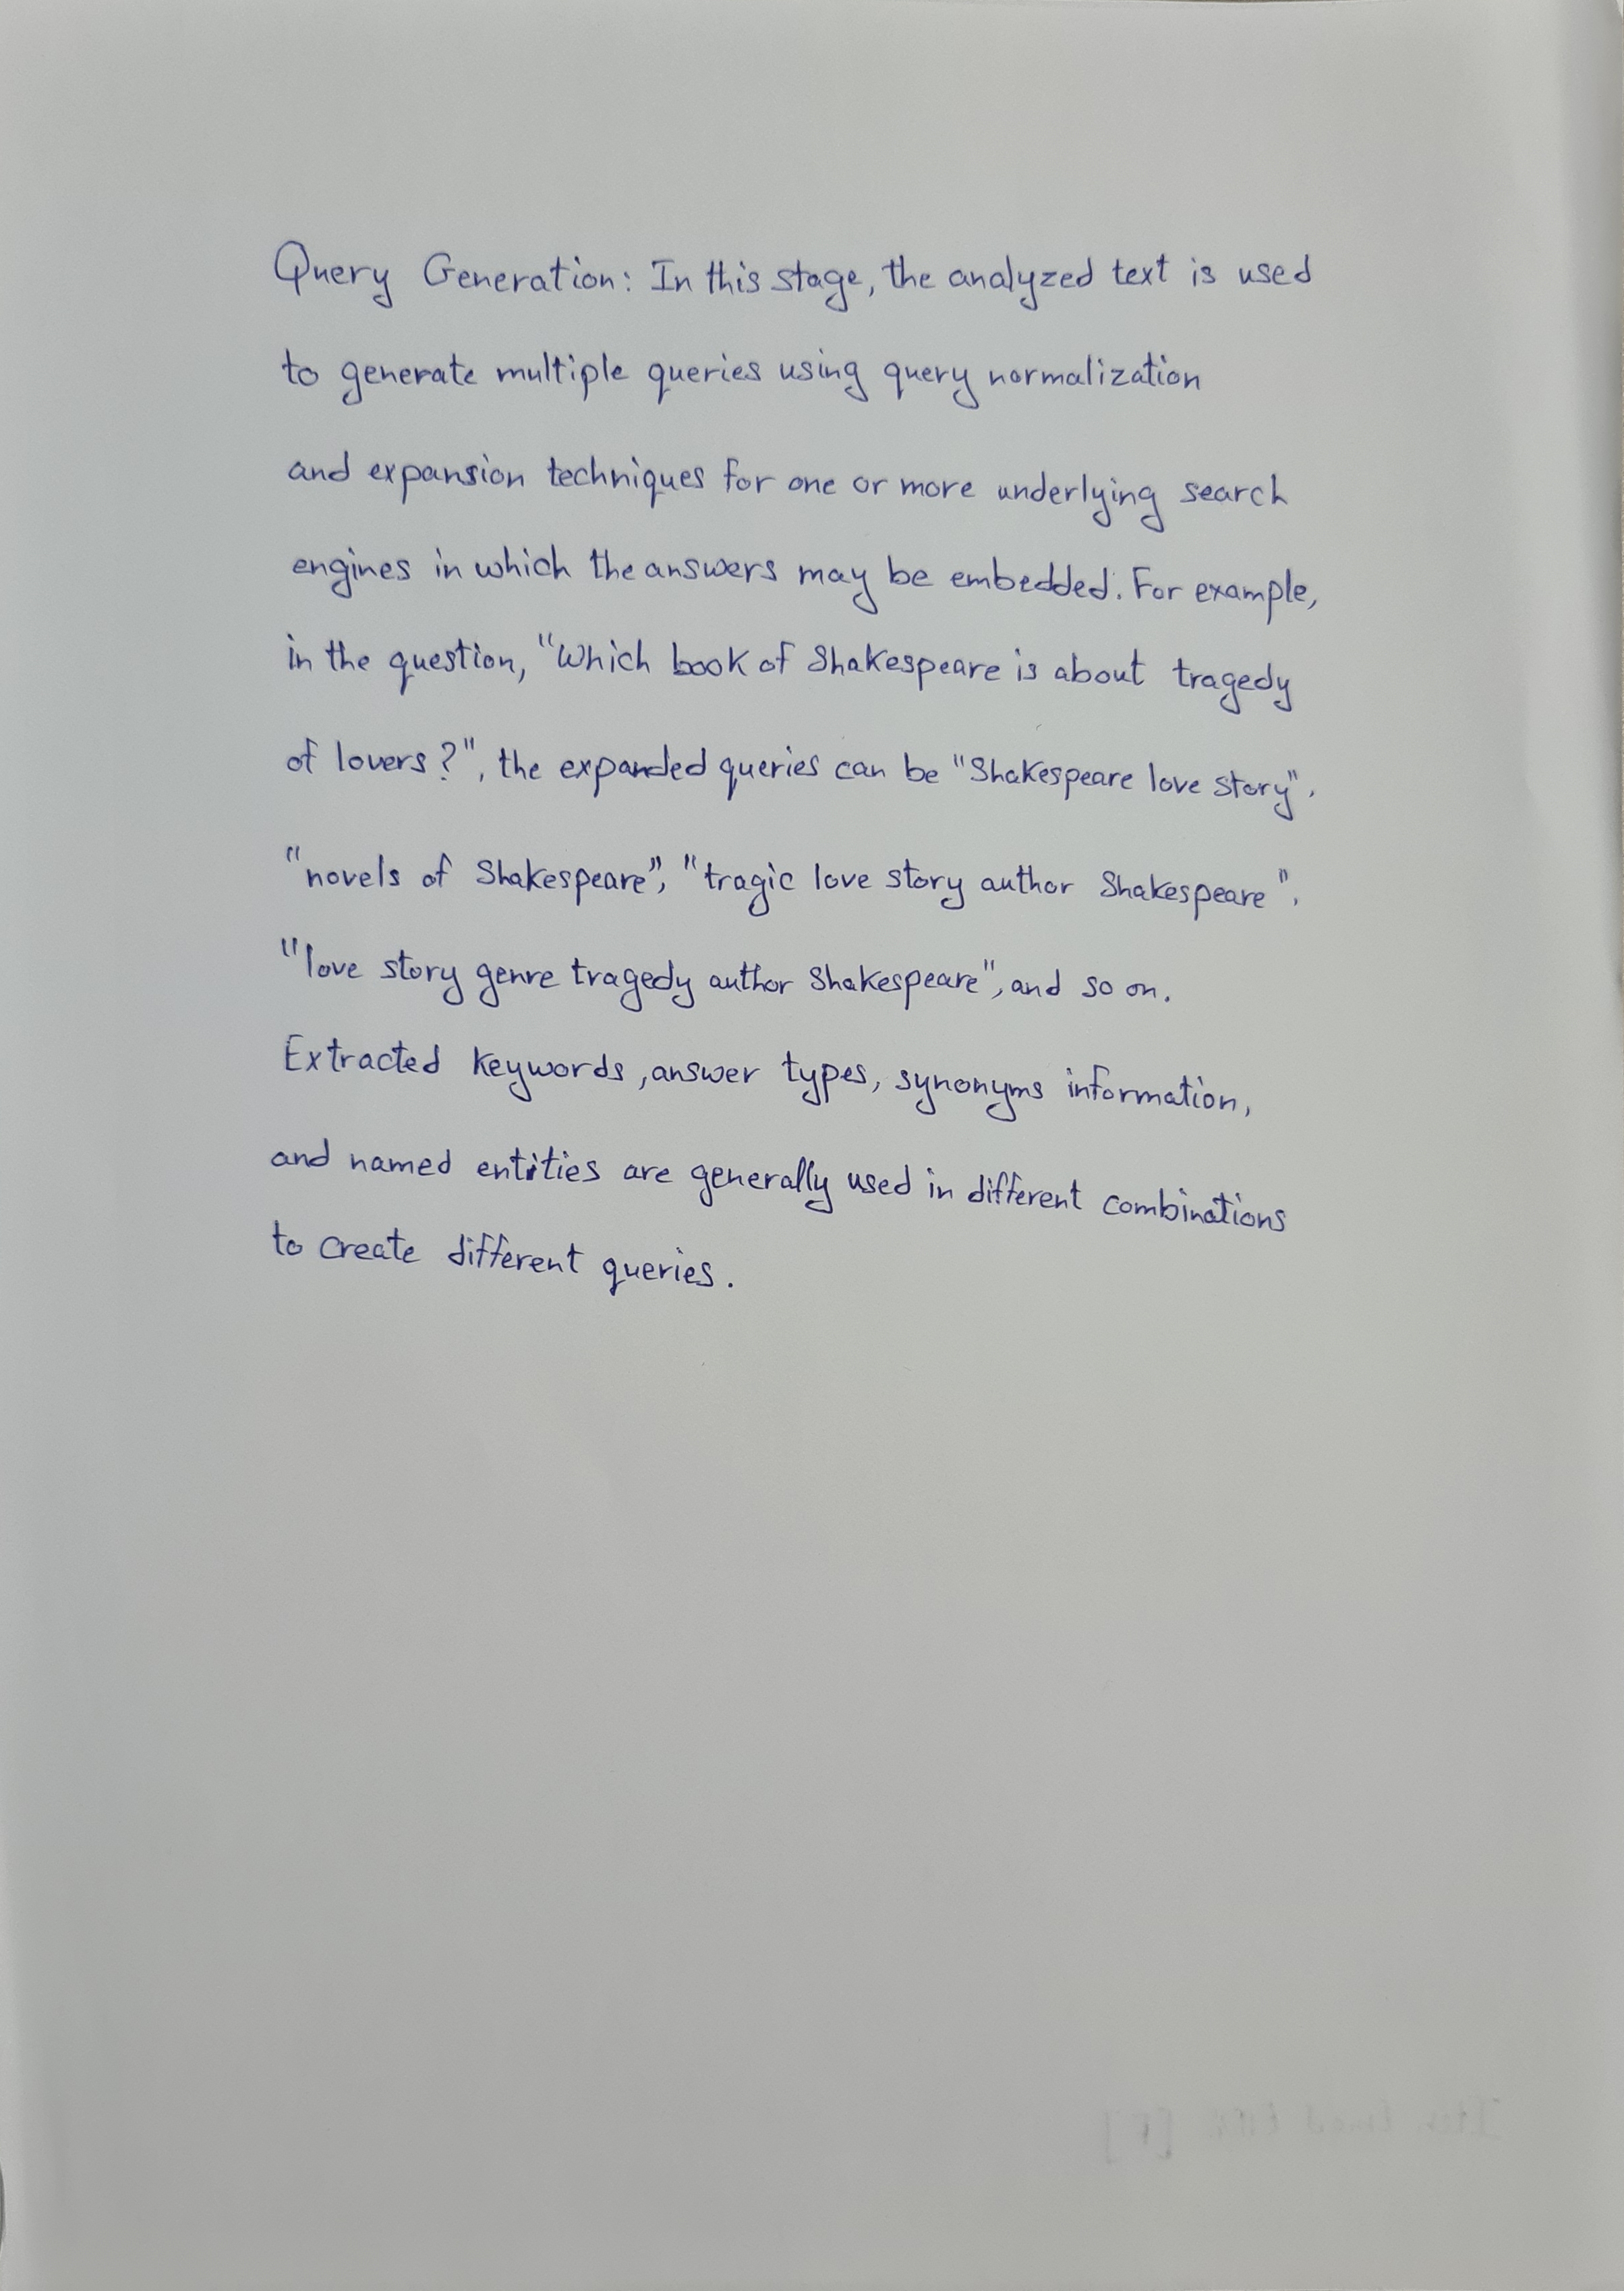 Query Generation: In this stage, the analyzed text is used
to generate multiple queries using query normalization
and expansion techniques for one or more underlying search
engines in which the answers may be embedded. For example,
in the question, "Which book of Shakespeare is about tragedy
of lovers?", the expanded queries can be "Shakespeare love story",
"novels of Shakespeare", "tragic love story author Shakespeare",
"love story genre tragedy author Shakespeare", and so on.
Extracted keywords, answer types, synonyms information,
and named entities are generally used in different combinations
to create different queries.